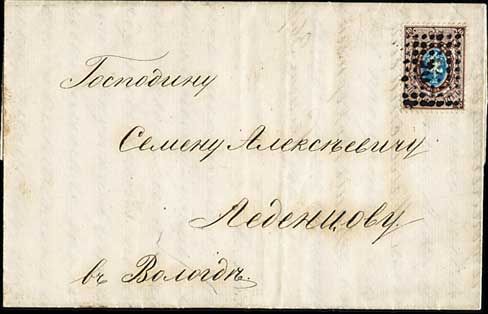 Господину
Семену Алексѣевичу
Леденцову
въ Вологдѣ.